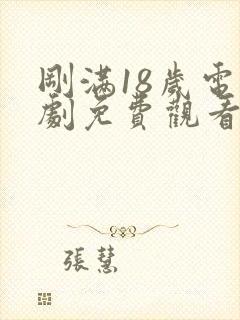 剛滿18歲電
劇免費觀看
張慧